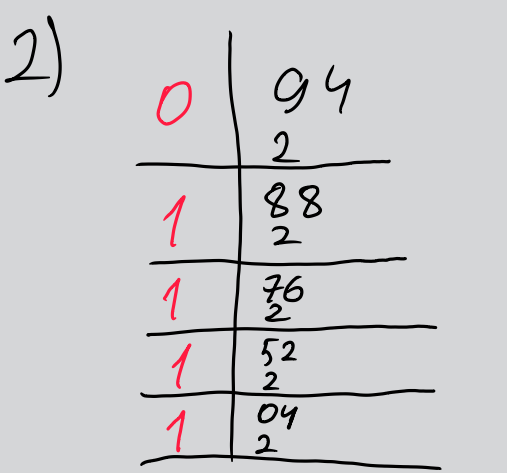 2)
0 94
2
1 88
2
1 76
2
1 52
2
1 04
2